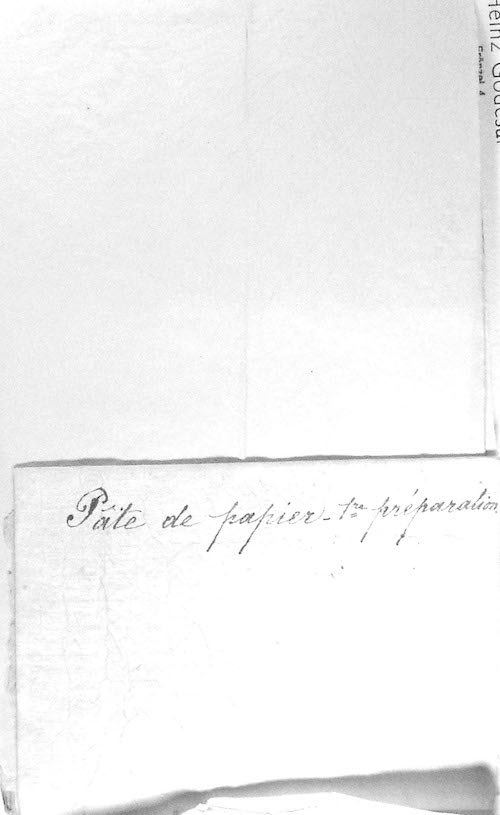 Heinz Godesar
Pâte de papier - 1re préparation